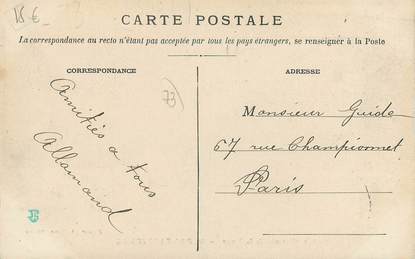 15 €
CARTE POSTALE
La correspondance au recto n'étant pas acceptée par tous les pays étrangers, se renseigner à la Poste
CORRESPONDANCE
ADRESSE
Amitiés a tous
Allamand
Monsieur Guide
67 rue Championnet
Paris